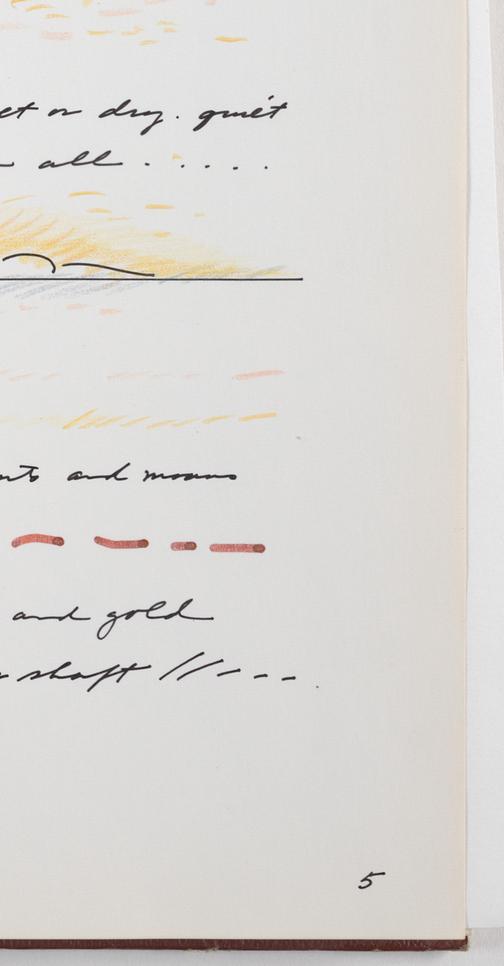 et or dry. quiet
all . . . . .
and moans
and gold
shaft //---.
5